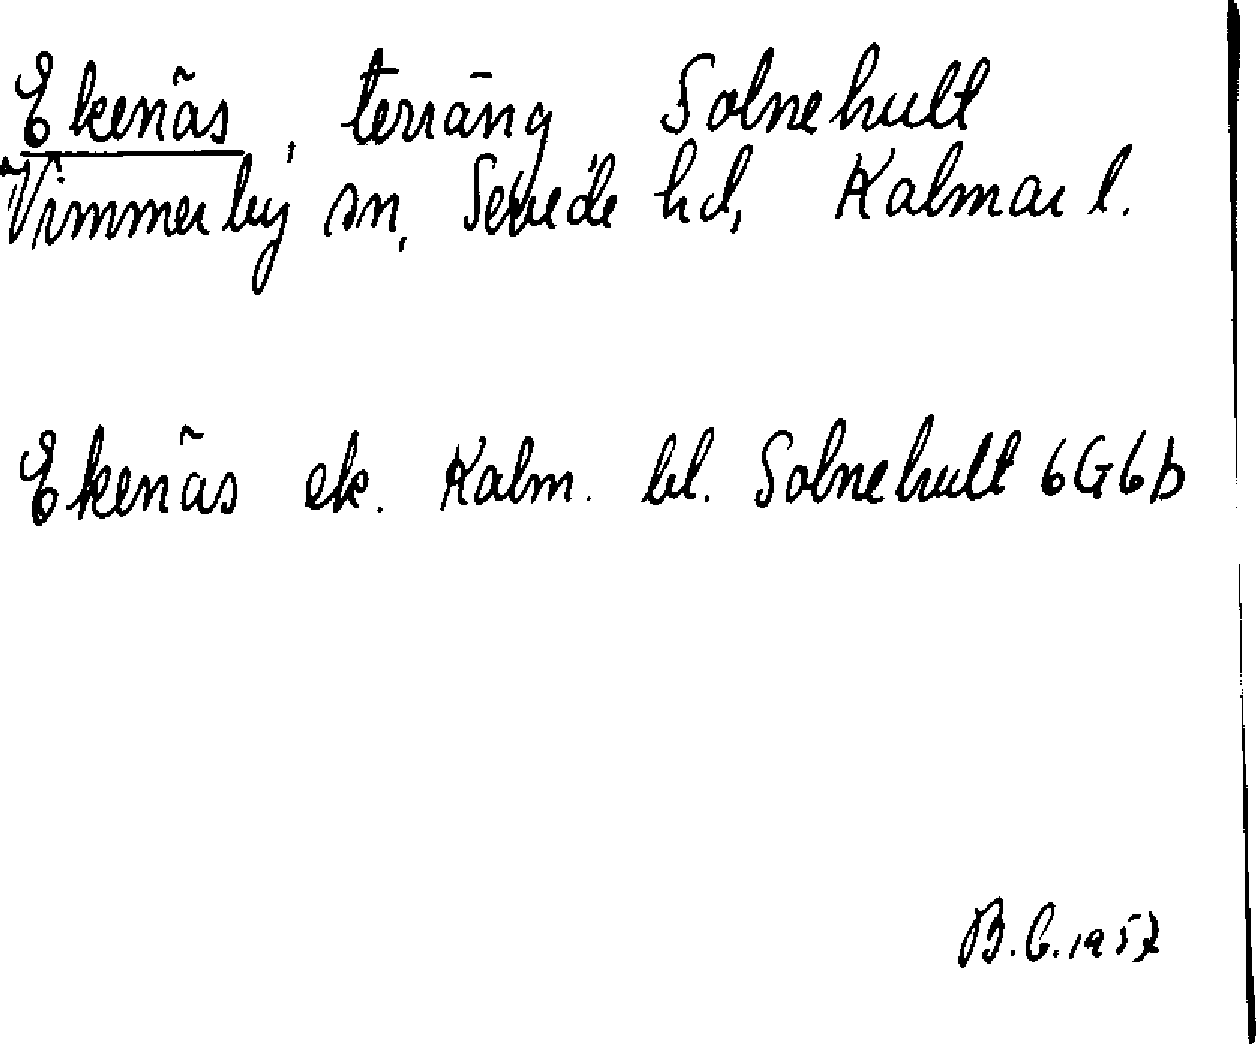 Ekenäs, terräng Solnehult
Vimmerby sn, Sevede hd, Kalmar l.
Ekenäs ek. Kalm. bl. Solnehult 6G6b
B.G. 1957